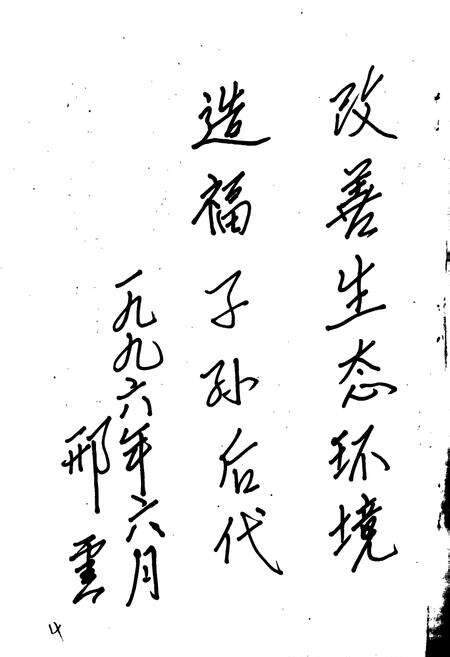 改善生态环境
造福子孙后代
一九九六年六月
邢雲
4